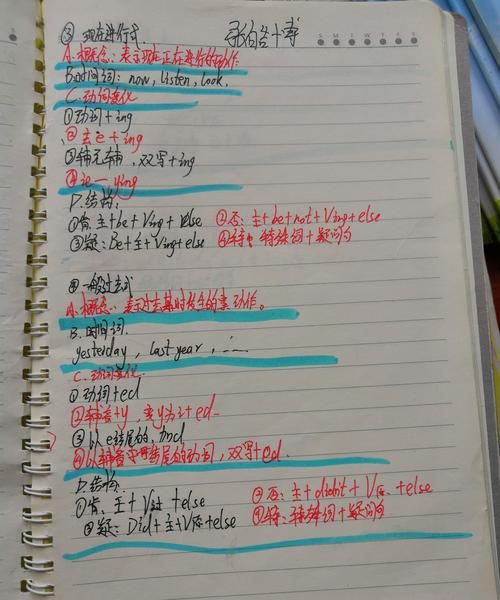 ③ 现在进行式.
S M T W T F S
A.概念:表示现在正在进行的动作
B.时间词: now, listen, look.
C.动词变化
①动词+ing
②去e+ing
③辅元辅,双写+ing
④ie—ying
D.结构:
①肯:主+be+Ving+else ②否:主+be+not+Ving+else
③疑:Be+主+Ving+else ④特:特殊词+疑问句
④一般过去式
A.概念:表示过去某时发生的 动作。
B.时间词.
yesterday, last year, ......
C.动词变化.
①动词+ed
②辅音+y,变y为i+ed
③以e结尾的,加d
④以辅音 结尾的动词,双写+ed.
D.结构.
①肯:主+V过+else ②否:主+didn't+V原+else
③疑:Did+主+V原+else ④特:特殊词+疑问句